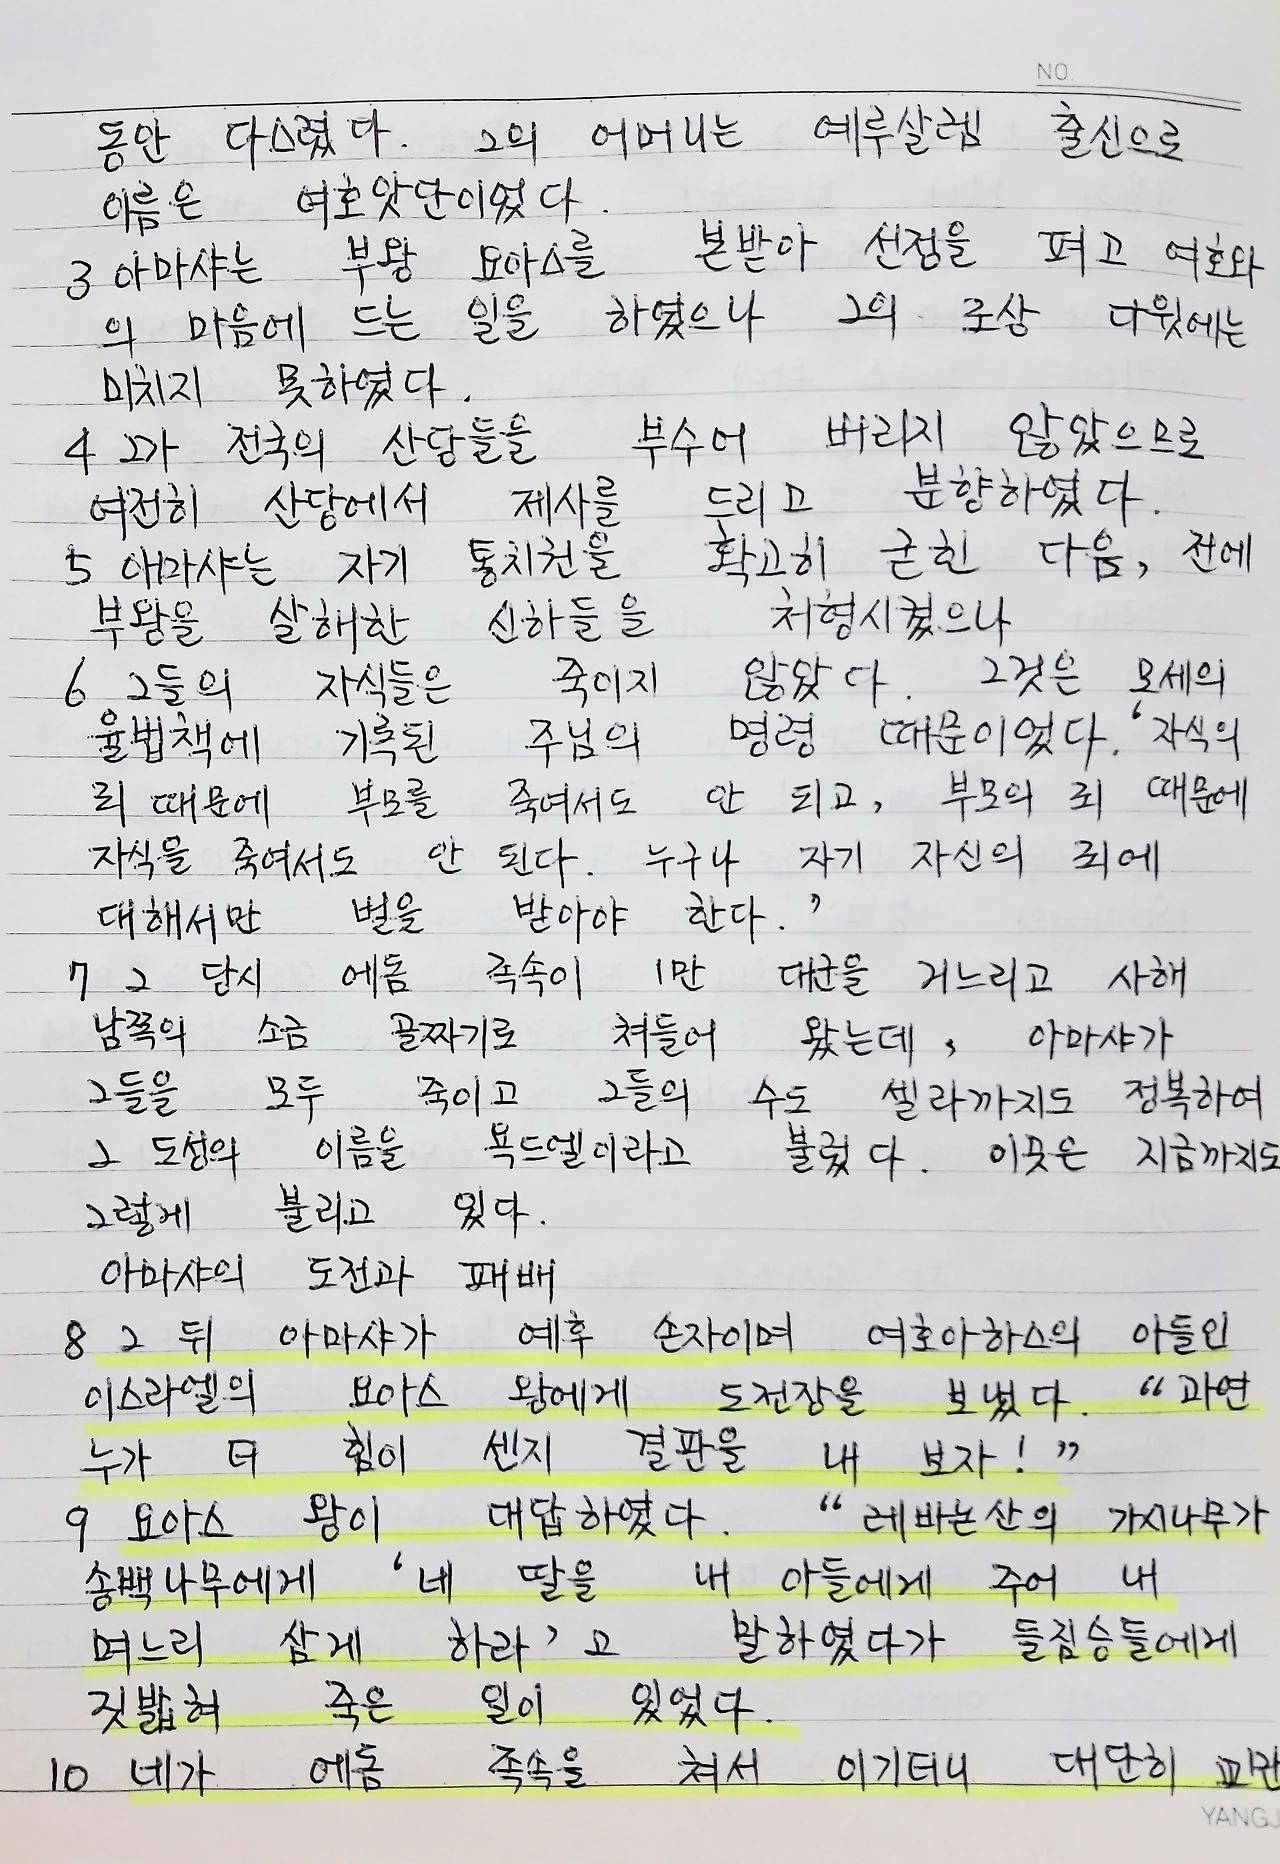 NO.
동안 다스렸다. 그의 어머니는 예루살렘 출신으로
이름은 여호앗단이었다.
3 아마샤는 부왕 요아스를 본받아 선정을 펴고 여호와
의 마음에 드는 일을 하였으나 그의 조상 다윗에는
미치지 못하였다.
4 그가 전국의 산당들을 부수어 버리지 않았으므로
여전히 산당에서 제사를 드리고 분향하였다.
5 아마샤는 자기 통치권을 확고히 굳힌 다음, 전에
부왕을 살해한 신하들을 처형시켰으나
6 그들의 자식들은 죽이지 않았다. 그것은 모세의
율법책에 기록된 주님의 명령 때문이었다. ‘자식의
죄 때문에 부모를 죽여서도 안 되고, 부모의 죄 때문에
자식을 죽여서도 안 된다. 누구나 자기 자신의 죄에
대해서만 벌을 받아야 한다.’
7 그 당시 에돔 족속이 1만 대군을 거느리고 사해
남쪽의 소금 골짜기로 쳐들어 왔는데, 아마샤가
그들을 모두 죽이고 그들의 수도 셀라까지도 정복하여
그 도성의 이름을 욕드엘이라고 불렀다. 이곳은 지금까지도
그렇게 불리고 있다.
아마샤의 도전과 패배
8 그 뒤 아마샤가 예후 손자이며 여호아하스의 아들인
이스라엘의 요아스 왕에게 도전장을 보냈다. “과연
누가 더 힘이 센지 결판을 내 보자!”
9 요아스 왕이 대답하였다. “레바논산의 가시나무가
송백나무에게 ‘네 딸을 내 아들에게 주어 내
며느리 삼게 하라’고 말하였다가 들짐승들에게
짓밟혀 죽은 일이 있었다.
10 네가 에돔 족속을 쳐서 이기더니 대단히 교만
YANGJ